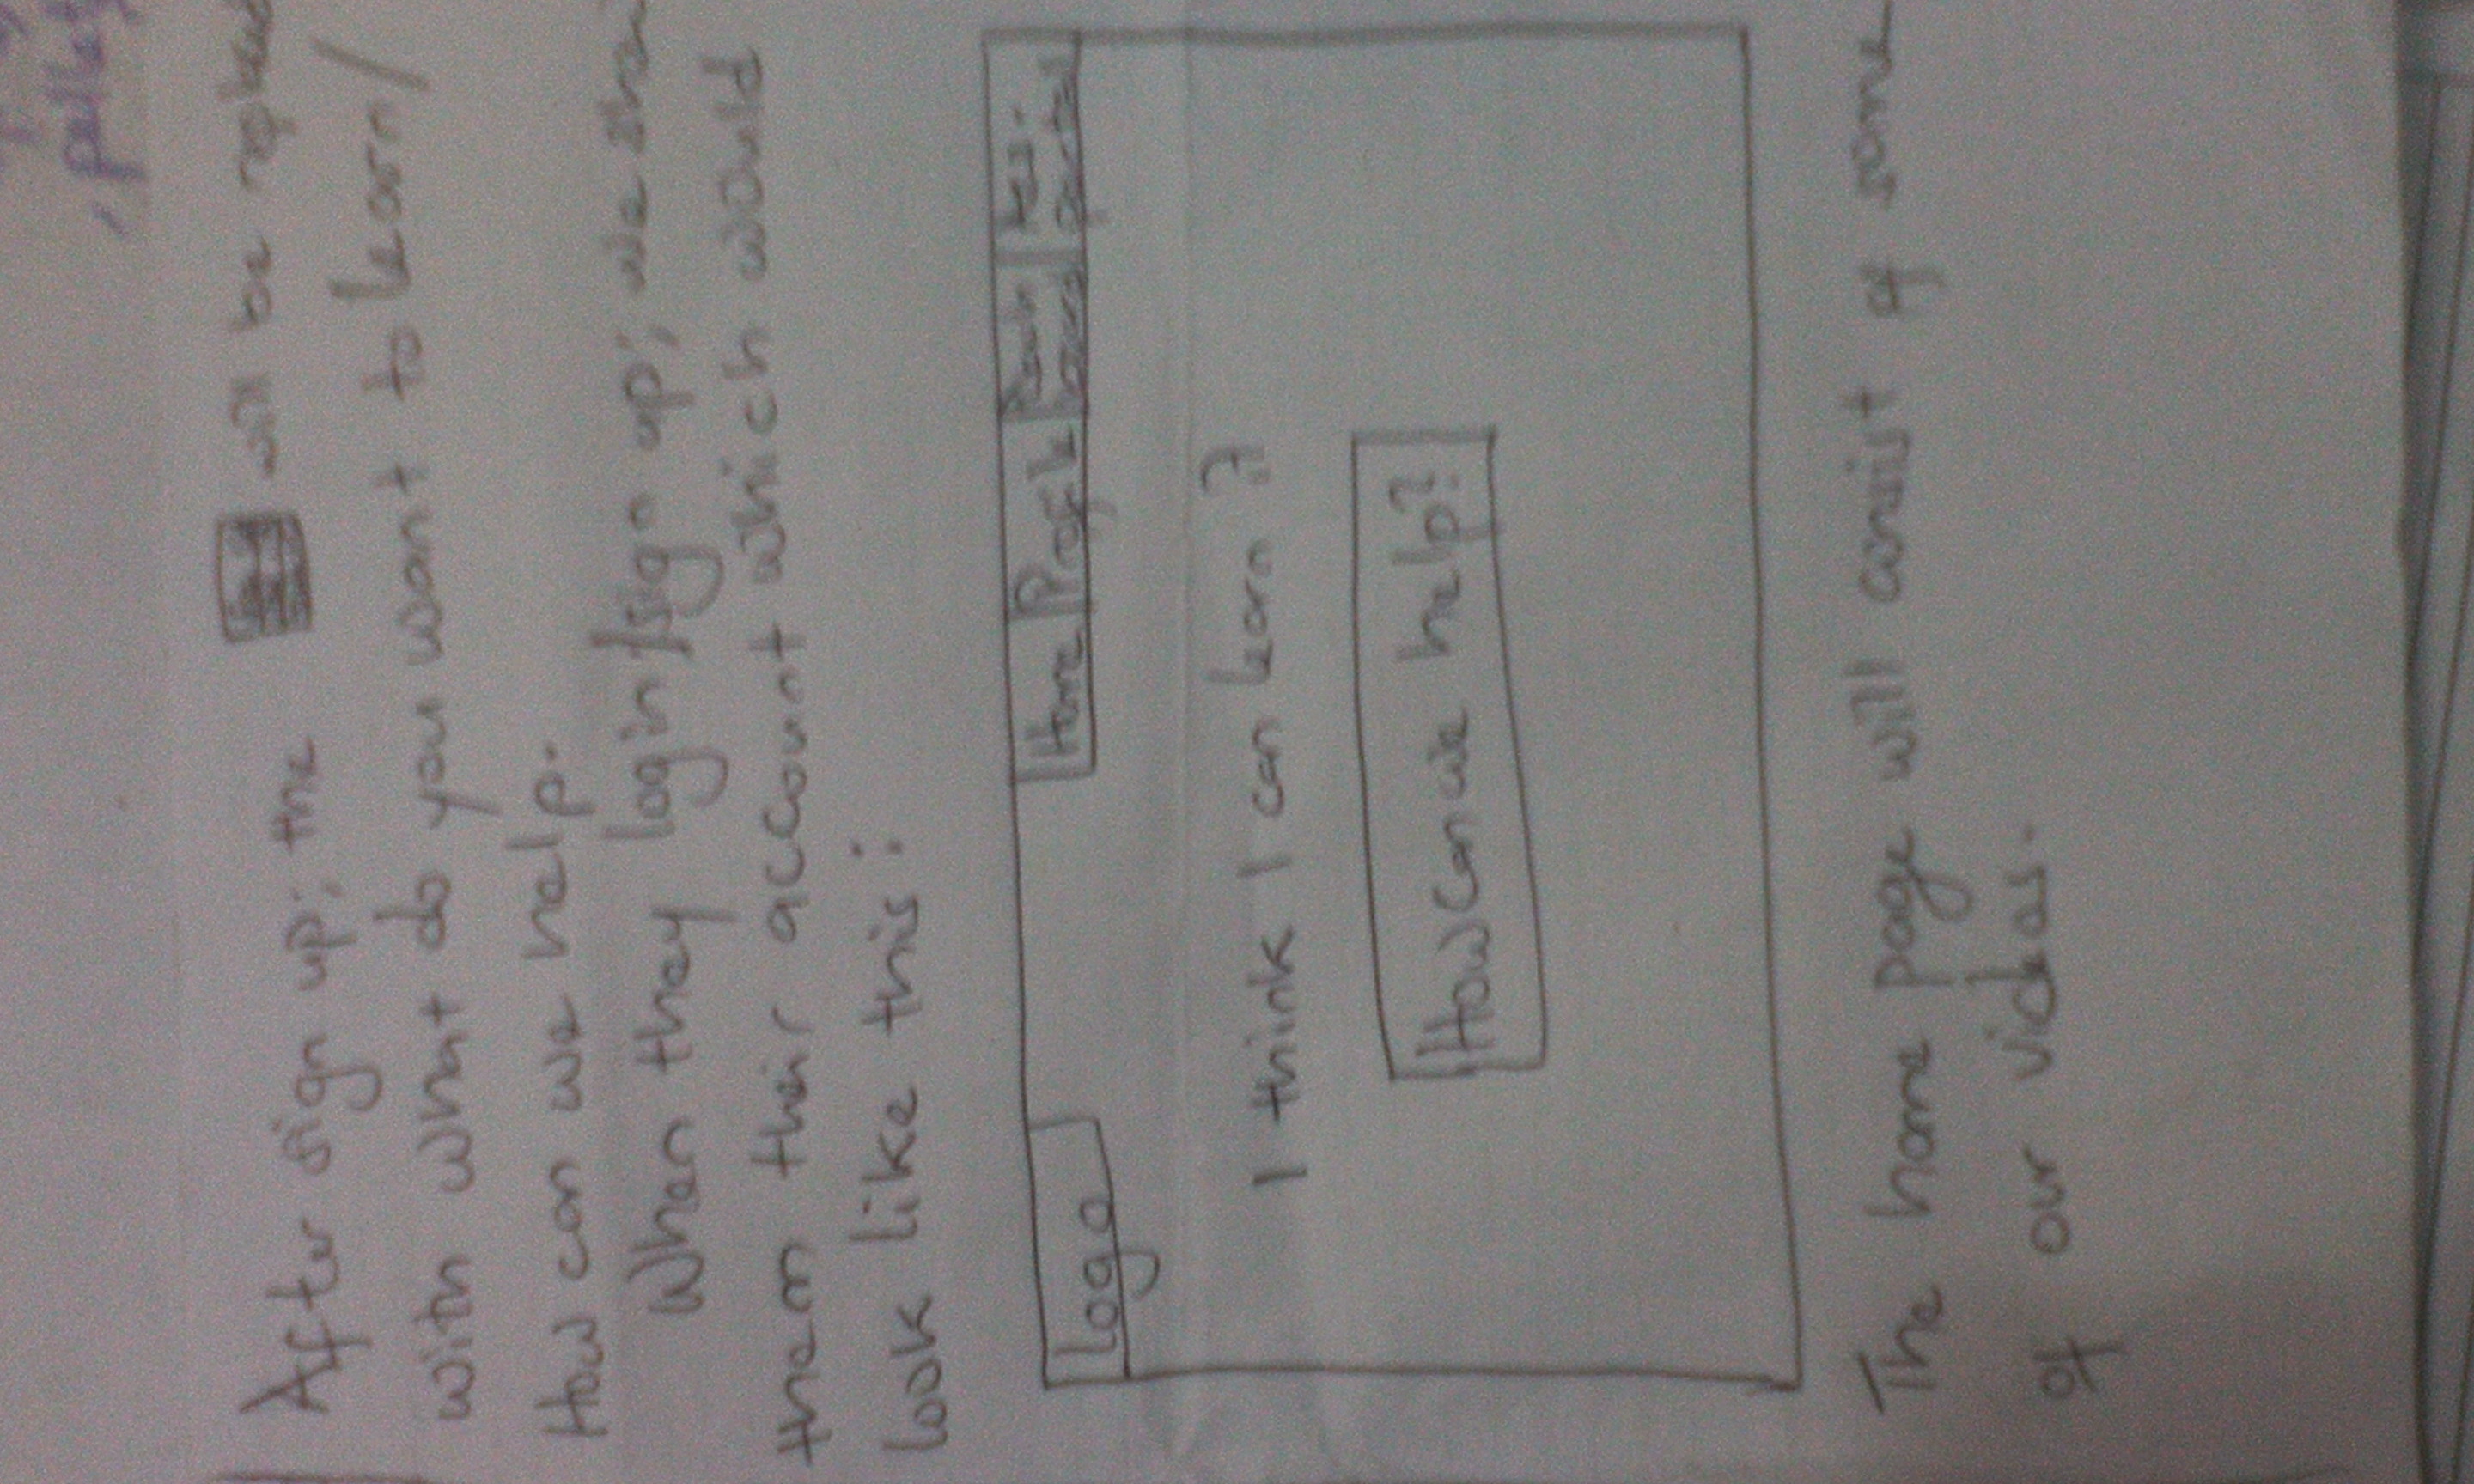 pallet
After sign up; the will be
with what do you want to learn/
How can we help.
When they login/sign up; we
them their account which would
look like this:
Logo Home Profile
I think I can learn it
How can we help?
The home page will consist of some
of our videos.